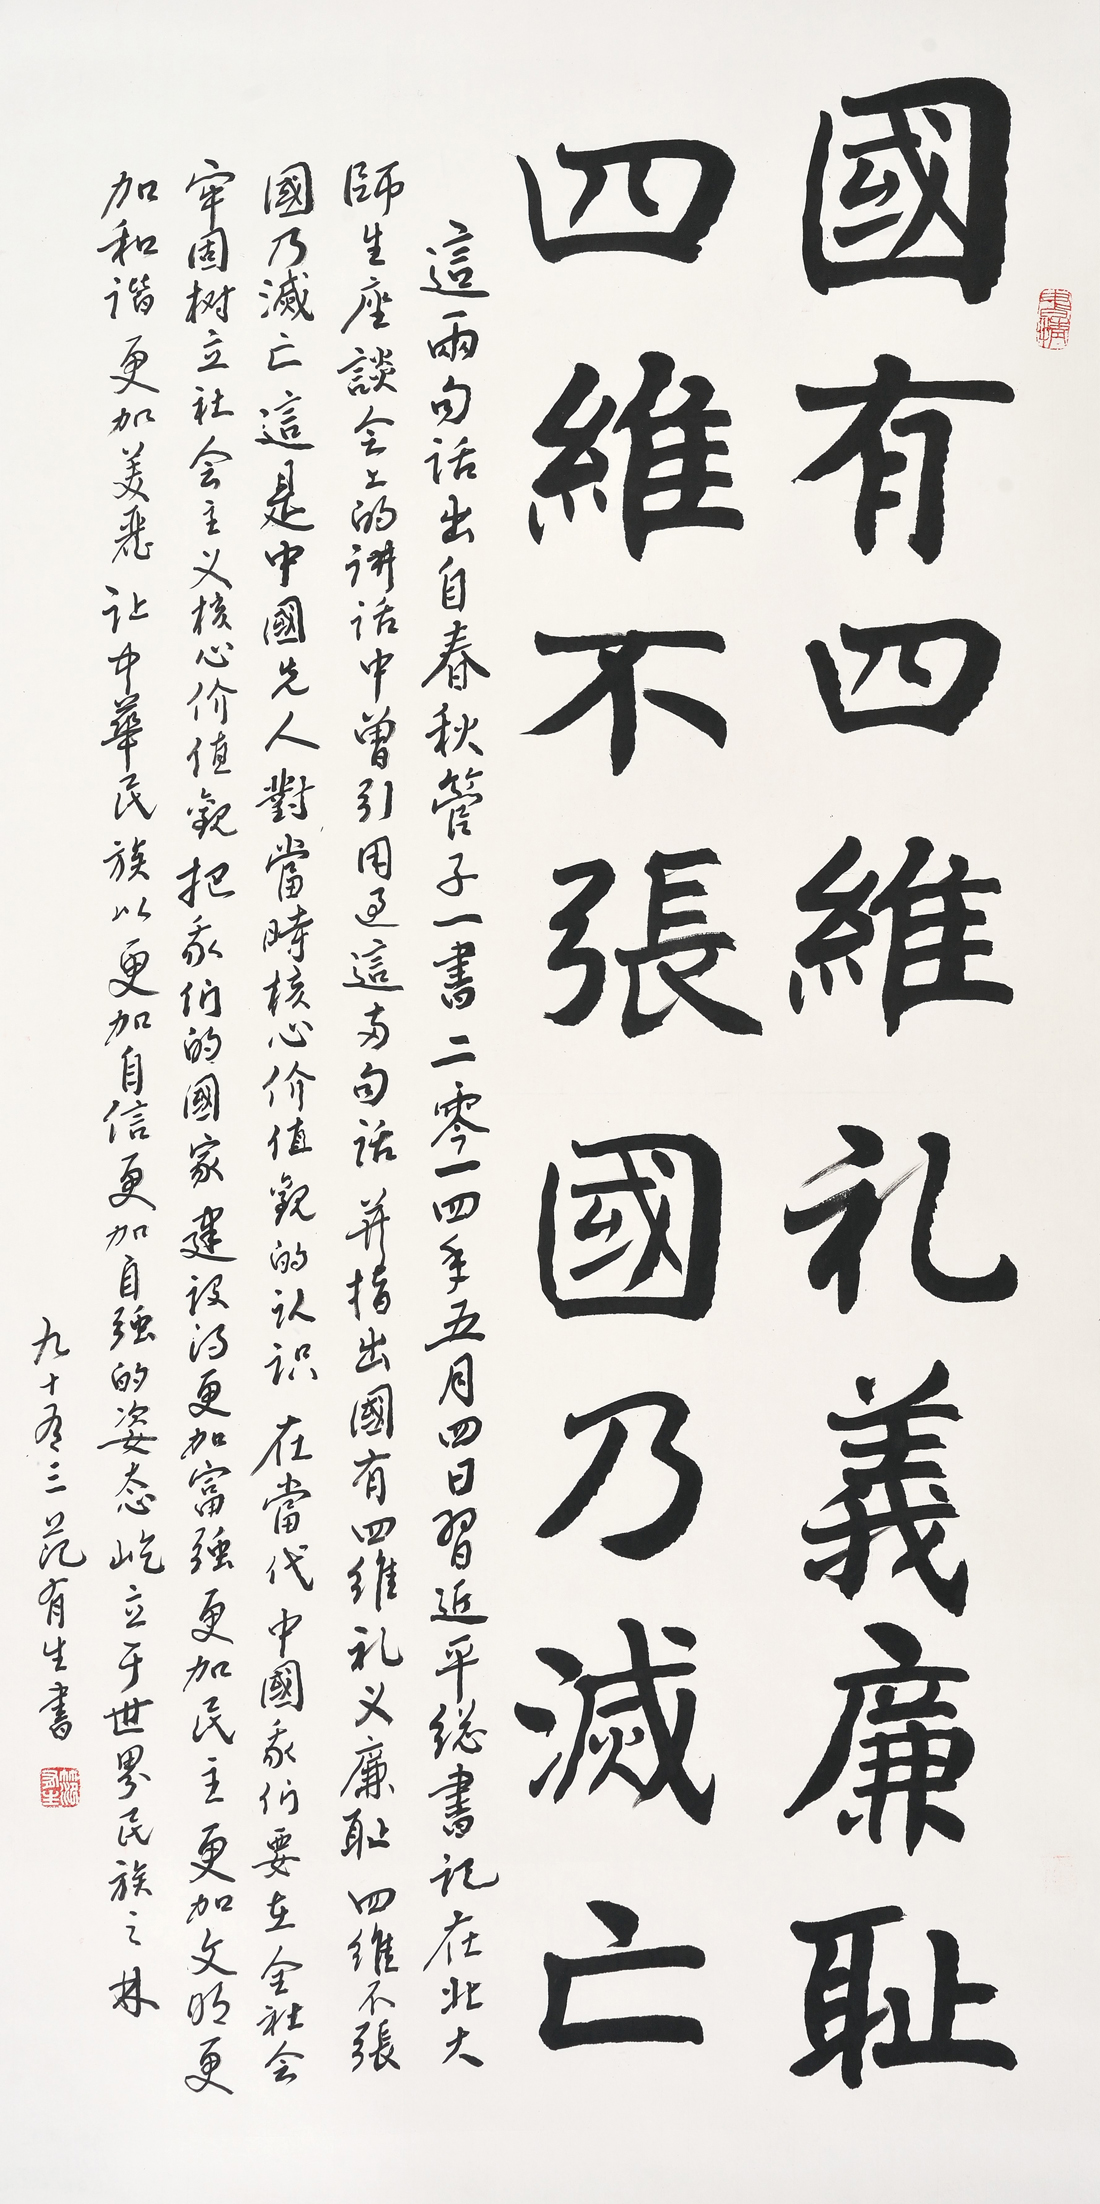 國有四維礼義廉耻
四維不張國乃滅亡
這兩句話出自春秋管子一書二零一四年五月四日習近平總書記在北大
師生座談会上的講話中曾引用过這両句話并指出國有四維礼义廉耻四維不張
國乃滅亡這是中國先人對當時核心价值觀的认识在當代中國我们要在全社会
牢固树立社会主义核心价值觀把我们的國家建设得更加富强更加民主更加文明更
加和谐更加美丽让中華民族以更加自信更加自强的姿态屹立于世界民族之林
九十有三范有生書